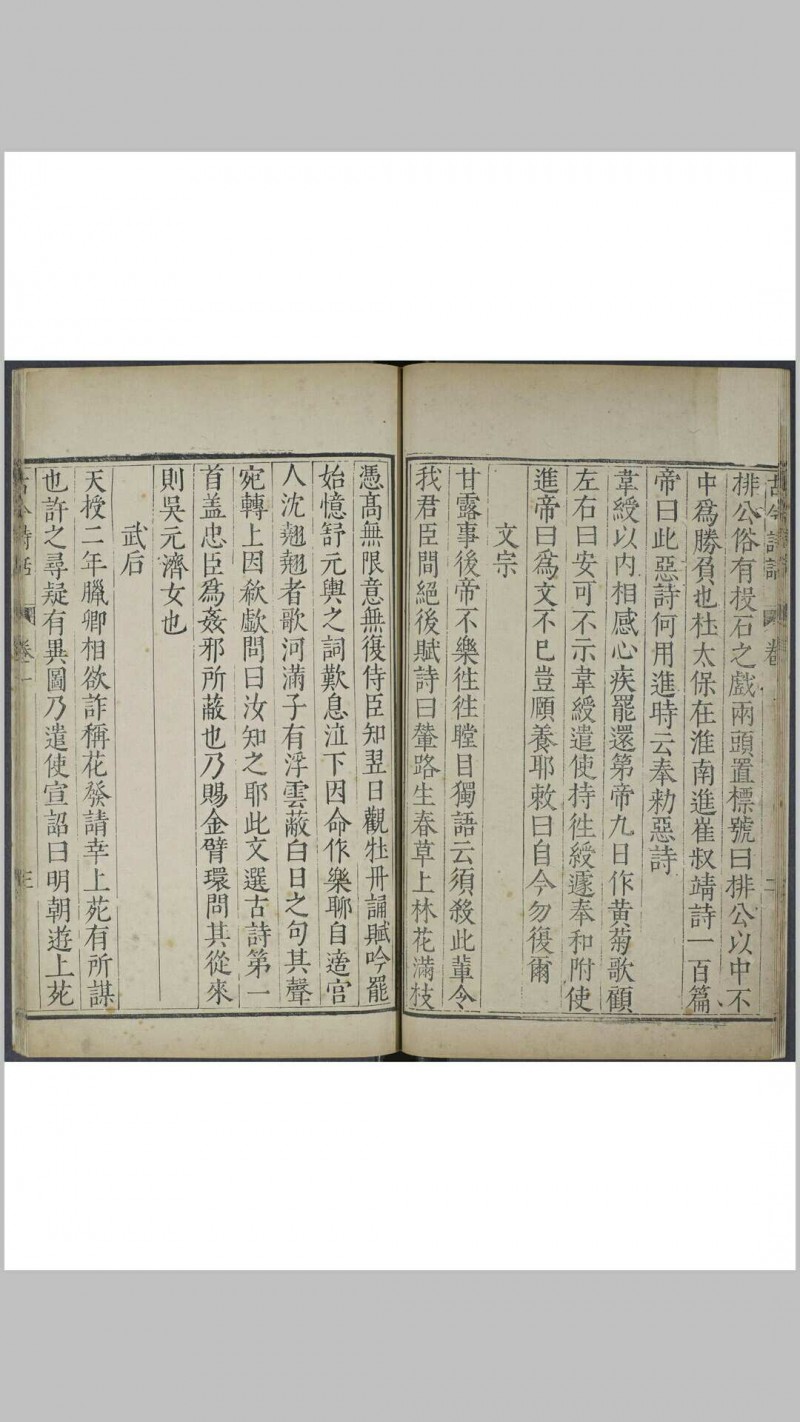 古今詩話 卷一 二
排公俗有投石之戲兩頭置標號曰排公以中不
中爲勝負也杜太保在淮南進崔叔靖詩一百篇
帝曰此惡詩何用進時云奉勑惡詩
韋綬以內相感心疾罷還第帝九日作黃菊歌顧
左右曰安可不示韋綬遣使持徃綬遽奉和附使
進帝曰爲文不已豈頤養耶敕曰自今勿復爾
文宗
甘露事後帝不樂徃徃瞠目獨語云須殺此輩令
我君臣間絕後賦詩曰輦路生春草上林花滿枝
憑髙無限意無復侍臣知翌日觀牡丹誦賦吟罷
始憶舒元輿之詞歎息泣下因命作樂聊自適宮
人沈翹翹者歌河滿子有浮雲蔽白日之句其聲
宛轉上因欷歔問曰汝知之耶此文選古詩第一
首盖忠臣爲姦邪所蔽也乃賜金臂環問其從來
則吳元濟女也
武后
天授二年臘卿相欲詐稱花發請幸上苑有所謀
也許之尋疑有異圖乃遣使宣詔曰明朝遊上苑
古今詩話 卷一 三